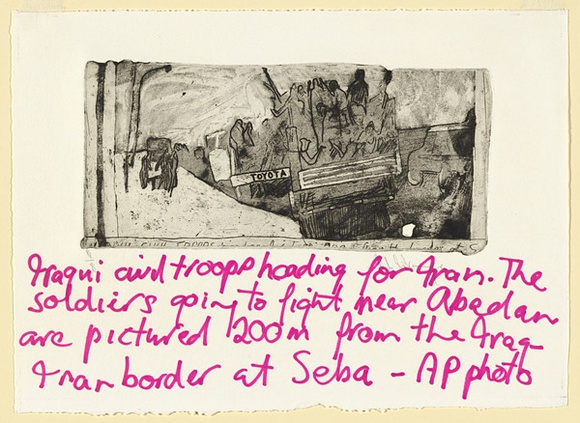 TOYOTA
Iraqui civil troops heading for Iran. The
soldiers going to fight near Abadan
are pictured 200m from the Iraq
Iran border at Seba - AP photo